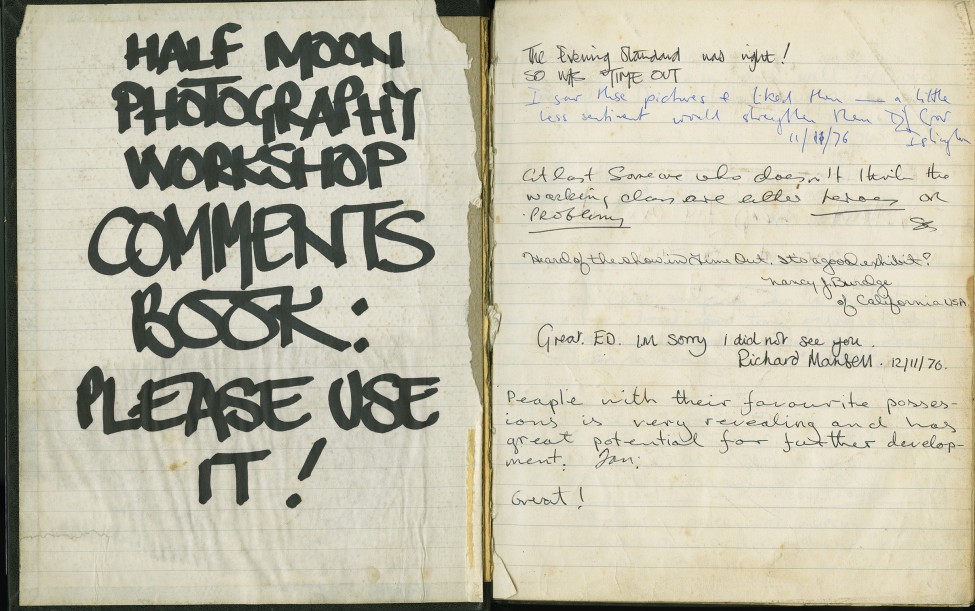 HALF MOON
PHOTOGRAPHY
WORKSHOP
COMMENTS
BOOK:
PLEASE USE
IT!
The Evening Standard was right!
SO WAS TIME OUT
I saw these pictures & liked them — a little
less sentiment would strengthen them
11/11/76 Islington
At last Someone who doesn't think the
working class are either heroes or
Problems
Heard of the show in Time Out. It's a good exhibit?
Nancy J. Burdge
of California USA
Great. ED. IM sorry I did not see you.
Richard Mansell. 12/11/76.
People with their favourite posses-
ions is very revealing and has
great potential for further develop-
ment. Jan.
Great!